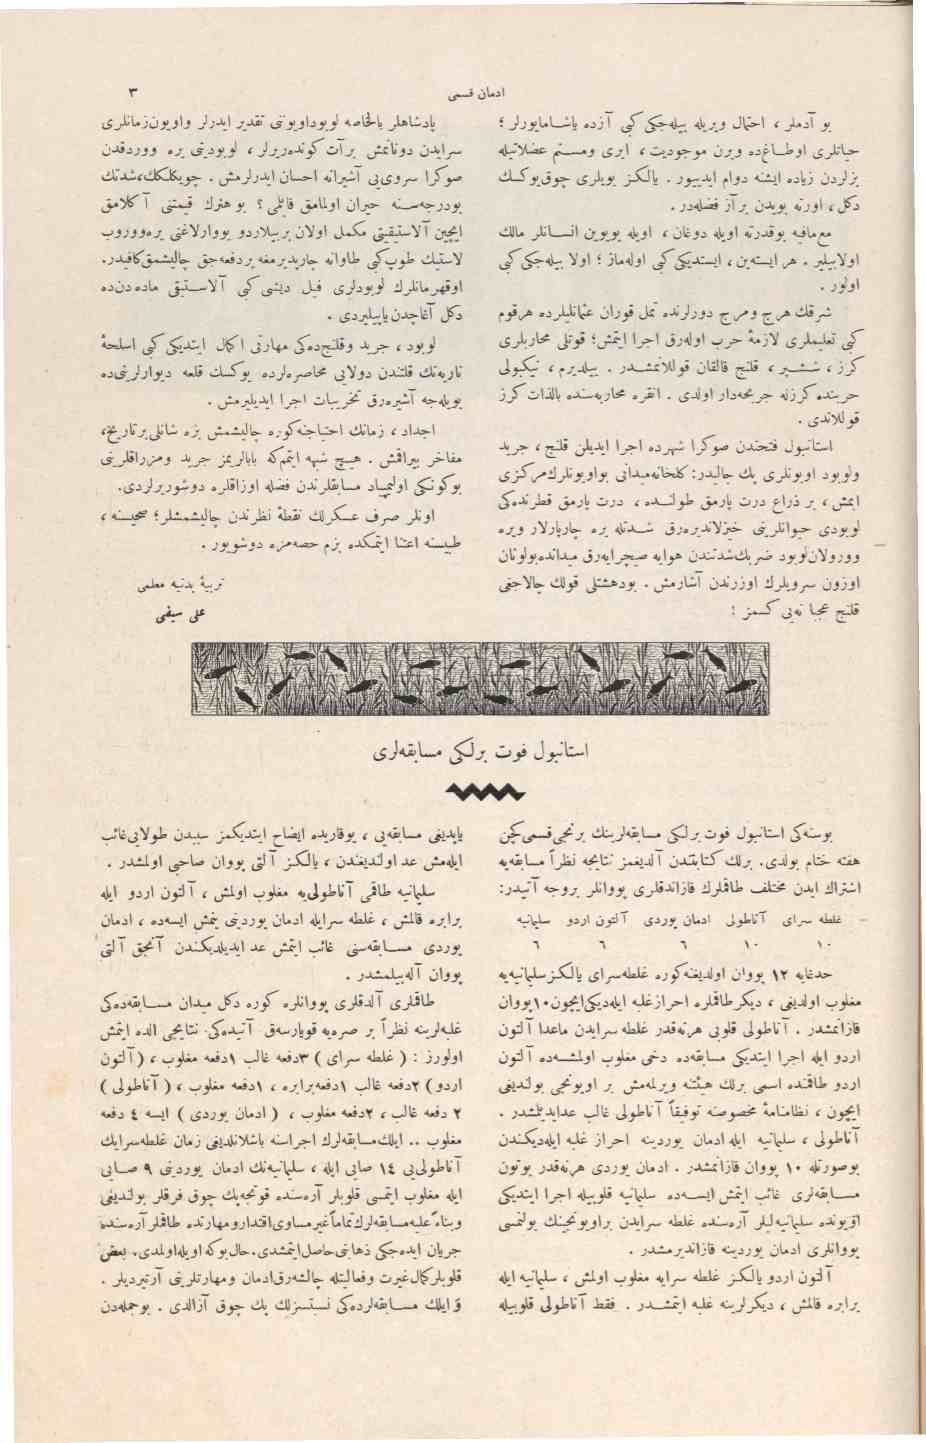 ادمان قسمی
٣
بو آدملر ، احتمال ویریله بیله‌جکی کبی آزده یاشامایورلر ؛
حیاتلری اوطاغ‌ده ویرن موجودیت ، ایری ومستم عضلاتیله
بزلردن زیاده ایشنه دوام ایدییور . یالکز بویلری چوق یوکسک
دکل ، اورته بویدن بر آز فضله‌در .
مع مافیه بوقدرته اویله دوغان ، اویله بویوین انسانلر مالك
اولابیلیر . هر ایسته‌ین ، ایستدیکی کبی اوله‌ماز ؛ اولا بیله‌جکی کبی
اولور .
شرقك هرج ومرج دورلرنده تمل قوران عثمانلیلرده هرقوم
کبی تعلیملری لازمهٔ حرب اوله‌رق اجرا ایتمش؛ قوتلی محاربلری
کرز ، ششپر ، قلنج قالقان قوللانمشدر . ییلدیرم ، نیکبولی
حربنده کرزله جریحه‌دار اولدی . انقره محاربه‌سنده بالذات کرز
قوللاندی .
استانبول فتحندن صوکرا شهرده اجرا ایدیلن قلنج ، جرید
ولوبود اویونلری پك جالبدر: کلخانه میدانی بواویونلرك مرکزی
ایمش ، بر ذراع درت پارمق طولنده ، درت پارمق قطرنده‌کی
لوبودی حیوانلرینی خیزلاندیره‌رق شدتله یره چارپارلار ویره
وورولان لوبود ضربك شدتندن هوایه صیچرایه‌رق میدانده بولونان
اوزون سرویلرك اوزرندن آشارمش . بودهشتلی قولك چالاجغی
قلنج عجبا نه‌یی کسمز !
پادشاهلر بالخاصه لوبوداویوننی تقدیر ایدرلر واویون زمانلری
سرایدن دونانمش بر آت کوندەریرلر ، لوبودینی یره ووردقدن
صوکرا سروی‌یی آشیرانه احسان ایدرلرمش . چویکلکك، شدتك
بودرجه‌سنه حیران اولمامق قابلمی ؟ بو هنرك قیمتنی آکلامق
ایچین آلاستیقیتی مکمل اولان بر بیلاردو یووارلاغنی یره ووروب
لاستیك طوپ کبی طاوانه چارپدیرمغه بر دفعه‌جق چالیشمق کافیدر.
اوقهرمانلرك لوبودلری فیل دیشی کبی آلاستیقی ماده‌دن ده
دکل آغاچدن یاپیلیردی .
لوبود ، جرید وقلنج‌ده‌کی مهارتی اکمال ایتدیکی کبی اسلحهٔ
ناریه‌نك قلتندن دولایی محاصره‌لرده یوکسك قلعه دیوارلرینی‌ده
بویله‌جه آشیره‌رق تخریبات اجرا ایدیلیرمش .
اجداد ، زمانك احتیاجنه کوره چالیشمش بزه شانلی بر تاریخ،
مفاخر بیراقمش . هیچ شبهه ایتمم که بابالریمز جرید ومزراقلرینی
بوکونکی اولیمپیاد مسابقلرندن فضله اوزاقلره دوشورررلردی.
اونلر صرف عسکرلك نقطهٔ نظرندن چالیشمشلر؛ صحیسنه ،
طبیسنه اعتنا ایتمکده بزم حصه‌مزه دوشویور .
تربیهٔ بدنیه معلمی
علی سیفی
استانبول فوت برلکی مسابقه‌لری
بوسنه‌کی استانبول فوت برلکی مسابقه‌لرینك برنجی قسمی کچن
هفته ختام بولدی. برلك کتابتندن آلدیغمز نتایجه نظراً مسابقه‌یه
اشتراك ایدن مختلف طاقملرك قازاندقلری پووانلر بروجه آتیدر:
غلطه سرای آناطولی ادمان یوردی آلتون اردو سلیمانیه
١٠ ١٠ ٦ ٦ ٦
حدغایه ١٢ پووان اولدیغنه کوره غلطه سرای یالکز سلیمانیه‌یه
مغلوب اولدیغی ، دیکر طاقملره احراز غلبه ایله‌دیکی ایچون ١٠ پووان
قازانمشدر . آناطولی قلوبی هرنه‌قدر غلطه سرایدن ماعدا آلتون
اردو ایله اجرا ایتدیکی مسابقه‌ده دخی مغلوب اولمشسه‌ده آلتون
اردو طاقمنده اسمی برلك هیئتنه ویرلمه‌مش بر اویونجی بولندیغی
ایچون ، نظامنامهٔ مخصوصنه توفیقاً آناطولی غالب عدایدیلمشدر .
آناطولی ، سلیمانیه ایله ادمان یوردینه احراز غلبه ایله‌دیکندن
بوصورتله ١٠ پووان قازانمشدر . ادمان یوردی هرنه‌قدر بوتون
مسابقه‌لری غائب ایتمش ایسه‌ده سلیمانیه قلوبیله اجرا ایتدیکی
اویونده سلیمانیه‌لیلر آره‌سنده غلطه سرایدن براویونجینك بولنمسی
پووانلری ادمان یوردینه قازاندیرمشدر .
آلتون اردو یالکز غلطه سرایه مغلوب اولمش ، سلیمانیه ایله
برابره قالمش ، دیکرلرینه غلبه ایتمشدر . فقط آناطولی قلوبیله
یاپدیغی مسابقه‌یی ، یوقاریده ایضاح ایتدیکمز سببدن طولایی غائب
ایله‌مش عد اولندیغندن ، یالکز آلتی پووان صاحبی اولمشدر .
سلیمانیه طاقمی آناطولی‌یه مغلوب اولمش ، آلتون اردو ایله
برابره قالمش ، غلطه سرایله ادمان یوردینی ینمش ایسه‌ده ، ادمان
یوردی مسابقه‌سنی غائب ایتمش عد ایدیلدیکندن آنجق آلتی
پووان آله‌بیلمشدر .
طاقملری آلدقلری پووانلره کوره دکل میدان مسابقه‌ده‌کی
غلبه‌لرینه نظراً بر صره‌یه قویارسه‌ق آتیده‌کی نتایجی الده ایتمش
اولورز : ( غلطه سرای ) ٣ دفعه غالب ١ دفعه مغلوب ، ( آلتون
اردو ) ٢ دفعه غالب ١ دفعه برابره ، ١ دفعه مغلوب ، ( آناطولی )
٢ دفعه غالب ، ٢ دفعه مغلوب ، ( ادمان یوردی ) ایسه ٤ دفعه
مغلوب .. ایلك مسابقه‌لرك اجراسنه باشلانلدیغی زمان غلطه سرایك
آناطولی‌یی ١٤ صایی ایله ، سلیمانیه‌نك ادمان یوردینی ٩ صایی
ایله مغلوب ایتمسی قلوبلر آره‌سنده قوتجه پك چوق فرقلر بولندیغی
وبناءً علیه مسابقه‌لرك تماماً غیر مساوی اقتدار و مهارتده طاقملر آره‌سنده
جریان ایده‌جکی ذهابنی حاصل ایتمشدی. حال بوکه اویله اولمدی. بعض
قلوبلر کمال غیرت وفعالیتله چالشه‌رق ادمان ومهارتلرینی آرتیردیلر .
و ایلك مسابقه‌لرده‌کی نسبتسزلك پك چوق آزالدی . بوجمله‌دن